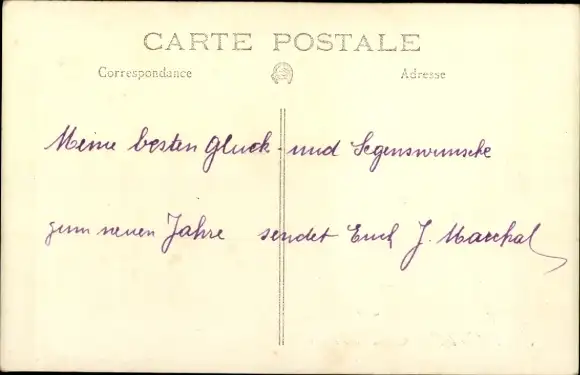 CARTE POSTALE
Correspondance Adresse
Meine besten Gluck- und Segenswunsche
zum neuen Jahre sendet Euch J. Marchal